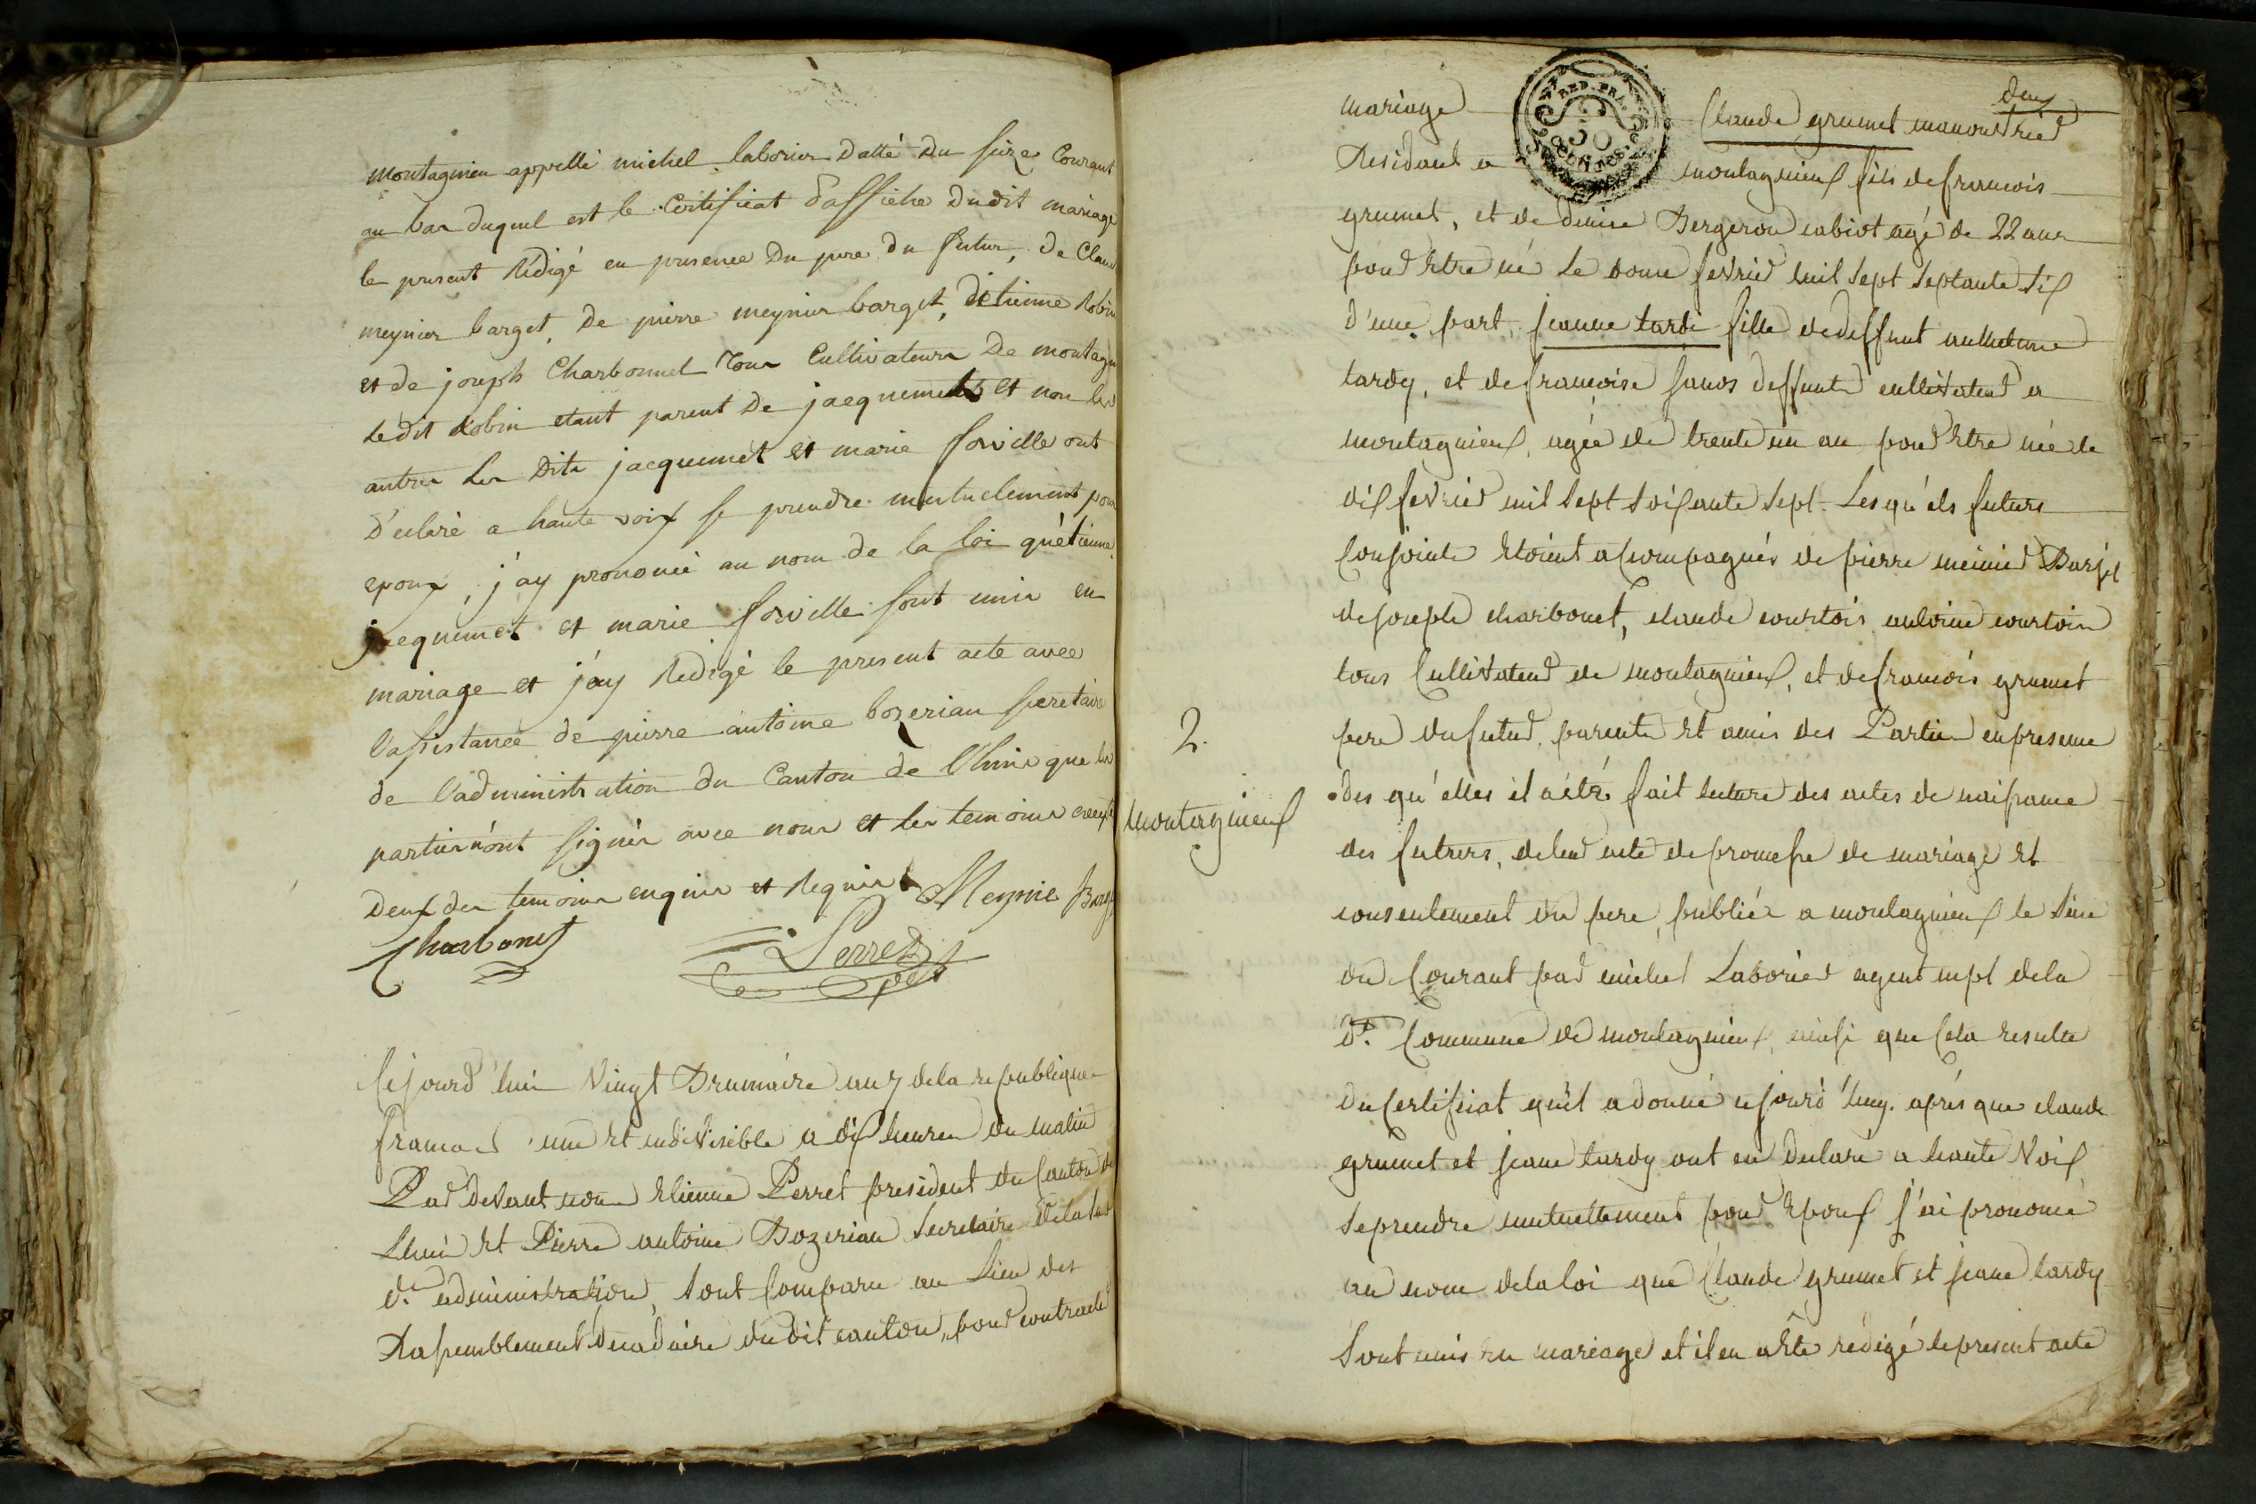 montagnieu appellé michel laborier datté du seize Courant
au bas duquel est le Certificat d'affiche dudit mariage
le present rédigé en presence du pere du futur, de Claude
meynier barget, de pierre meynier barget, d'étienne Robin
et de joseph Charbonnet tous Cultivateurs de montagnieu
ledit Robin etant parent de jacquemet et non les
autres Les dits jacquemet et marie forville ont
d'eclaré a haute voix se prendre mutuelement pour
epoux, j'ay prononcé au nom de la loi qu'étienne
jacquemet et marie forville sont unis en
mariage et j'ay Redigé le present acte avec
l'assistance de pierre antoine bozerian secretaire
de l'administration du Canton de Lhuis que les
parties n'ont signés avec nous et les temoins excepté
deux des temoins enquis et Requis Meynie Barget
Charbonet Perret
pdt
Cejourd'hui Vingt Brumaire an 7 de la republique
francaise une et indivisible a dix heures du matin
Par devant nous Etienne Perret president du Canton de
Lhuis et Pierre antoine Bozerian Secretaire de la
de. administration, Sont Comparu au Lieu des
Rassemblement decadaire du dit canton, pour contracter
deux
mariage Claude grumet manouvrier
REP. FRA.
50
CENTES.
Residant a montagnieux fils de francois
grumet, et de denise Bergeron cabiot agé de 22 ans
pour Etre né Le fevrier mil sept septante six
d'une part, jeanne tardi fille de deffunt anthelme
tardy, et de francoise deffunte cultivateur a
montagnieux, agée de trente un an pour Etre née le
dix fevrier mil sept soixante sept. Lesqu'els futurs
Conjoints Etoient acompagnés de pierre meinier Barjet
de joseph charbonet, claude courtois antoine courtois
tous Cultivateur de montagnieux, et de francois grumet
2. pere du futur, parents et amis des Parties en presence
desqu'elles il a été fait lecture des actes de naissance
montagnieux
des futurs, de leur acte de promesse de mariage et
consentement du pere, publiée a montagnieux le Seize
du Courant par michel Laborier agent mpl de la
de. Commune de montagnieux, ainsi que Cela resulte
du Certificat qu'il a donné cejourd'huy. après que claude
grumet et jeane tardy ont eu declaré a haute Voix
se prendre mutuellement pour Epoux j'ai prononcé
au nom de la loi que Claude grumet et jeane tardy
Sont unis en mariage et il en a été rédigé le present acte